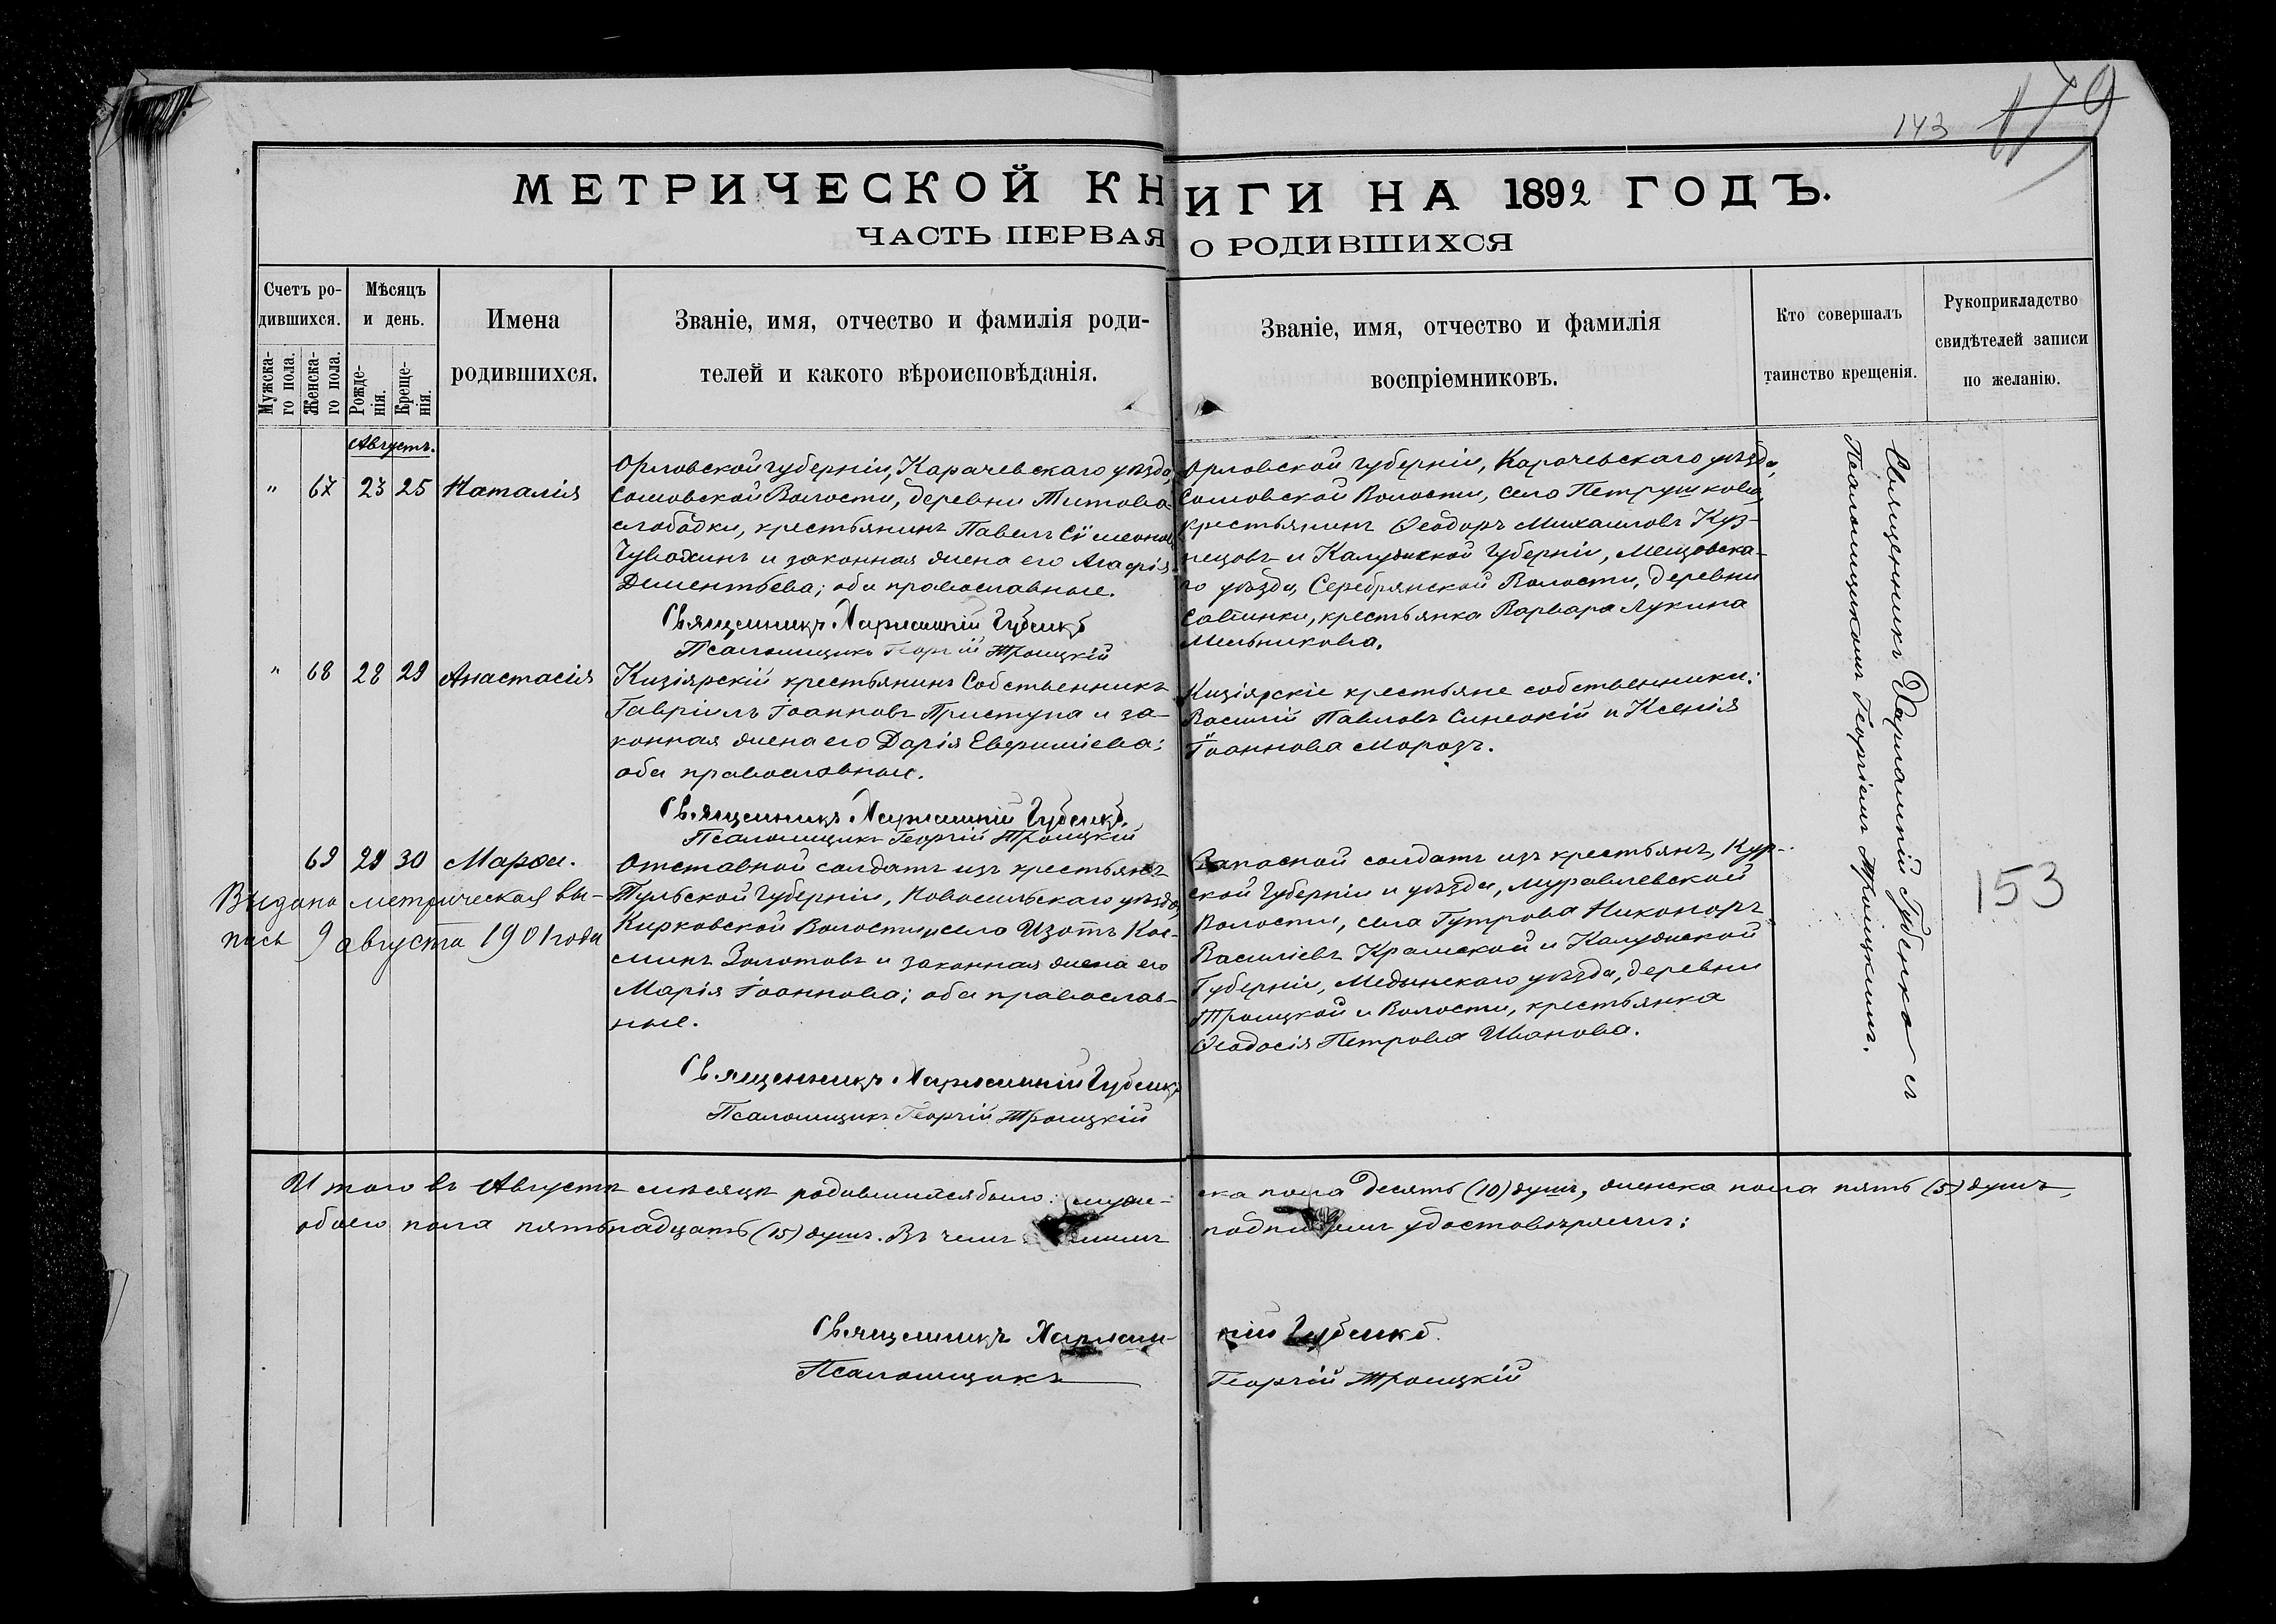 143 179
МЕТРИЧЕСКОЙ КНИГИ НА 1892 ГОДЪ.
ЧАСТЬ ПЕРВАЯ О РОДИВШИХСЯ
Счетъ ро-
дившихся.
Мужска-
го пола.
Женска-
го пола.
Мѣсяцъ
и день.
Рожде-
нія.
Креще-
нія.
Имена
родившихся.
Званіе, имя, отчество и фамилія роди-
телей и какого вѣроисповѣданія.
Званіе, имя, отчество и фамилія
воспріемниковъ.
Кто совершалъ
таинство крещенія.
Рукоприкладство
свидѣтелей записи
по желанію.
Августъ.
" 67 23 25 Наталія
Орловской губерніи, Карачевскаго уѣзда,
Сомовской Волости, деревни Титова-
слободки, крестьянинъ Павелъ Сѵмеоновъ
Чувахинъ и законная жена его Агафія
Дементьева; оба православные.
Священникъ Харлампій Губенко
Псаломщикъ Георгій Троицкій
Орловской губерніи, Карачевскаго уѣзда,
Сомовской Волости, села Петрушкова,
крестьянинъ Ѳеодоръ Михаиловъ Куз-
нецовъ и Калужской Губерніи, Мещовска-
го уѣзда, Серебрянской Волости, деревни
крестьянка Варвара Лукина
Мельникова.
" 68 28 29 Анастасія
Кизіярскій крестьянинъ Собственникъ
Гавріилъ Іоанновъ Приступа и за-
конная жена его Дарія Евѳиміева;
оба православные.
Священникъ Харлампій Губенко.
Псаломщикъ Георгій Троицкій
Кизіярскіе крестьяне собственники:
Василій Павловъ Синеокій и Ксенія
Іоаннова Морозъ.
69 29 30 Марѳа.
Выдана метрическая вы-
пись 9 августа 1901 года
Отставной солдатъ изъ крестьянъ
Тульской Губерніи, Новосильскаго уѣзда,
Кирковской Волости и села Изотъ Кос-
минъ Золотовъ и законная жена его
Марія Іоаннова; оба православ-
ные.
Священникъ Харлампій Губенко
Псаломщикъ Георгій Троицкій
Запасной солдатъ изъ крестьянъ, Кур-
ской Губерніи и уѣзда, Муравлевской
Волости, села Гутрова Никаноръ
Василіевъ Крамской и Калужской
Губерніи, Медынскаго уѣзда, деревни
Троицкой и Волости, крестьянка
Ѳеодосія Петрова Иванова.
Священникъ Харлампій Губенко съ
Псаломщикомъ Георгіемъ Троицкимъ.
153
Итого въ Августѣ мѣсяцѣ родившихся было: муже-
ска пола десять (10) душъ, женска пола пять (5) душъ,
обоего пола пятьнадцать (15) душъ. Въ чемъ
удостовѣряемъ:
Священникъ Харлам-
пій Губенко
Псаломщикъ Георгій Троицкій